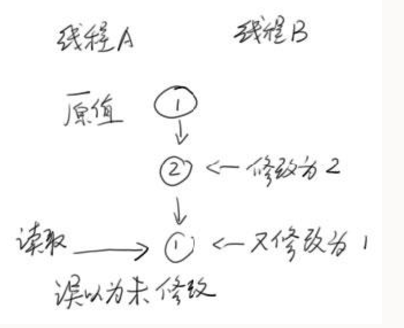 线程A 线程B
原值 1
2 ← 修改为2
读取 → 1 ← 又修改为1
误以为未修改